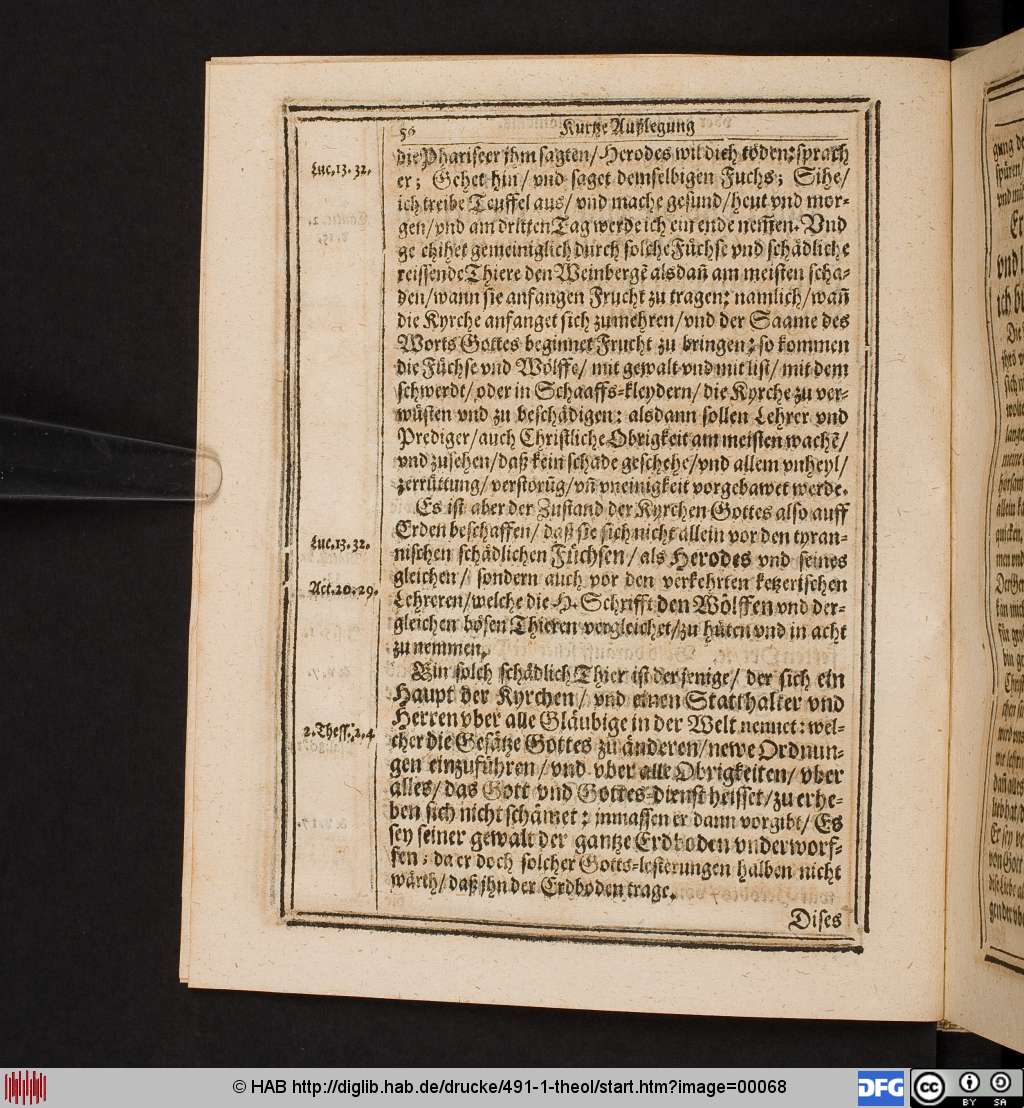 56 Kurtze Außlegung
die Phariseer jhm sagten/ Herodes wil dich töden: sprach
er; Gehet hin/ vnd saget demselbigen Fuchs; Sihe/
ich treibe Teuffel aus/ vnd mache gesund/ heut vnd mor-
gen/ vnd am dritten Tag werde ich ein ende nem̃en. Vnd
ge chihet gemeiniglich durch solche Füchse vnd schädliche
reissende Thiere den Weinbergẽ alsdañ am meisten scha-
den/ wann sie anfangen Frucht zu tragen: namlich/ wañ
die Kyrche anfanget sich zumehren/ vnd der Saame des
Worts Gottes beginnet Frucht zu bringen; so kommen
die Füchse vnd Wölffe/ mit gewalt vnd mit list/ mit dem
schwerdt/ oder in Schaaffs-kleydern/ die Kyrche zu ver-
wüsten vnd zu beschädigen: alsdann sollen Lehrer vnd
Prediger/ auch Christliche Obrigkeit am meisten wachẽ/
vnd zusehen/ daß kein schade geschehe/ vnd allem vnheyl/
zerrüttung/ verstörũg/ vñ vneinigkeit vorgebawet werde.
Es ist aber der Zustand der Kyrchen Gottes also auff
Erden beschaffen/ daß sie sich nicht allein vor den tyran-
nischen schädlichen Füchsen/ als Herodes vnd seines
gleichen/ sondern auch vor den verkehrten ketzerischen
Lehreren/ welche die H. Schrifft den Wölffen vnd der-
gleichen bösen Thieren vergleichet/ zu hüten vnd in acht
zu nemmen.
Ein solch schädlich Thier ist der jenige/ der sich ein
Haupt der Kyrchen/ vnd einen Statthalter vnd
Herren vber alle Gläubige in der Welt nennet: wel-
cher die Gesätze Gottes zu änderen/ newe Ordnun-
gen einzuführen/ vnd vber alle Obrigkeiten/ vber
alles/ das Gott vnd Gottes-dienst heisset/ zu erhe-
ben sich nicht schämet: inmassen er dann vorgibt/ Es
sey seiner gewalt der gantze Erdboden vnderworf-
fen, da er doch solcher Gotts-lesterungen halben nicht
wärth/ daß jhn der Erdboden trage.
Dises
Luc. 13. 32.
Luc. 13. 32.
Act. 20. 29.
2. Thess. 2. 4
© HAB http://diglib.hab.de/drucke/491-1-theol/start.htm?image=00068
DFG
cc
BY SA